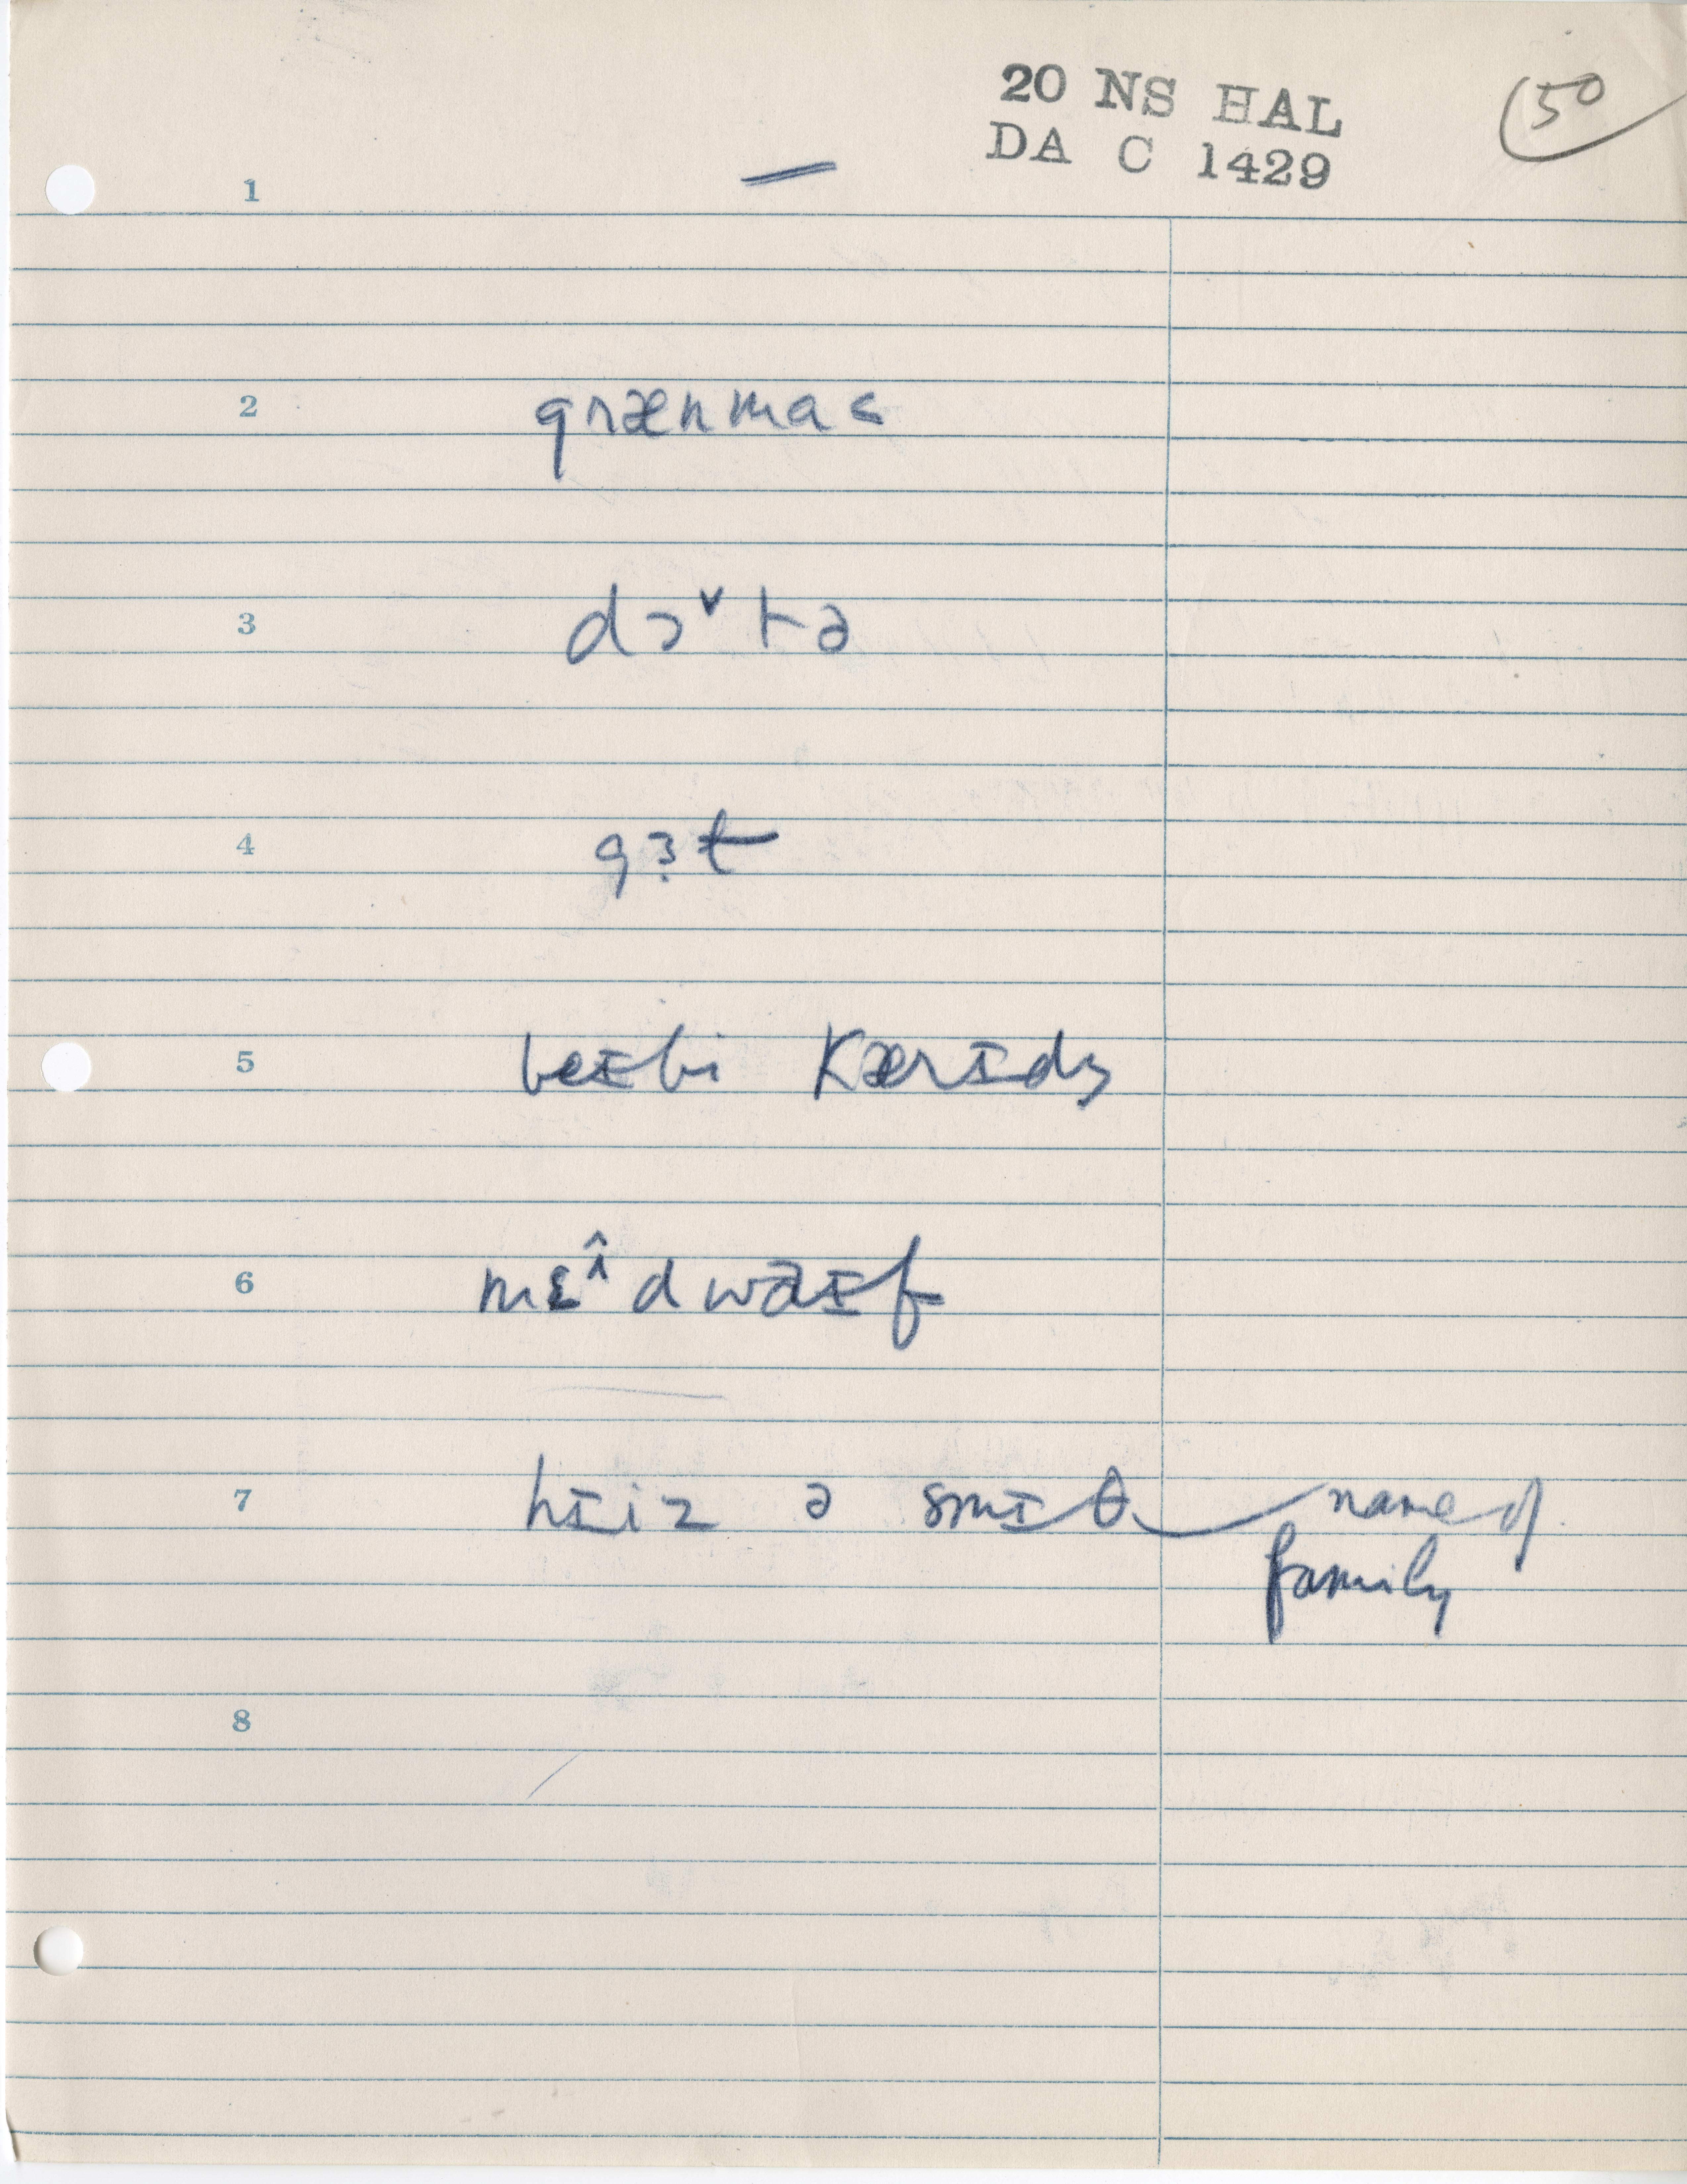 20 NS HAL
DA C 1429
50
1 —
2 grænma<
3 dɔˇtə
4 gɜt
5 beɪbi kærɪdʒ
6 mɛ^ɪdwaɪf
7 hɪiz ə smɪθ name of
family
8